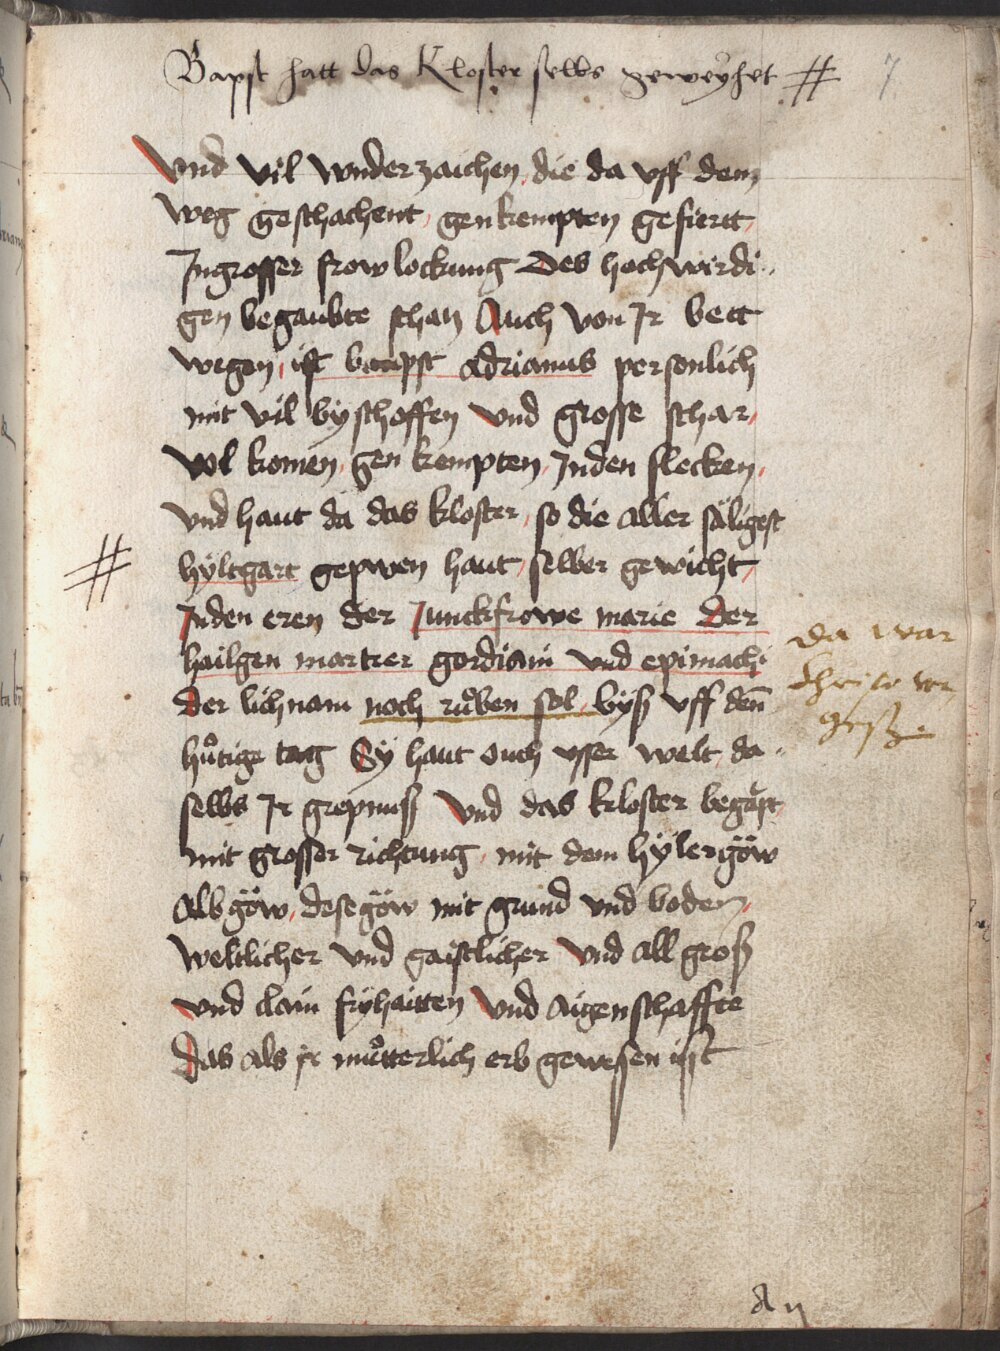 Bapst hatt das Kloster selbs geweÿhet #
7
Vnd vil wnderzaichen die da vff dem
weg geschachent genkempten gefuertt
Jngrosser frow lockung Des hochwirdi
gen begaubte schatz Auch von Jr bett
wegen ist baupst Adrianus personlich
mit vil byschoffen vnd grosse schar
vol komen gen kempten Jnden flecken
vnd haut da das kloster so die aller säligest
#
hyltgart gepwen haut selber gewicht
Jnden eren der Junckfrowe marie Der
hailgen martrer gordiani vnd epimachi
da war
Der lichnam noch ruͦben sol byß vff den̄
huͦtige tag Sÿ haut ouch vsser welt da
selbs Jr grepnuß Vnd das kloster begäpt
mit grosser richtung mit dem hÿlergöw
Albgöw desegöw mit grund vnd boden
weltlicher vnd gaistlicher vnd all groß
vnd clain fryhaitten Vnd aigenschaffte
Das als jr muͦtterlich erb gewesen ist
A ij